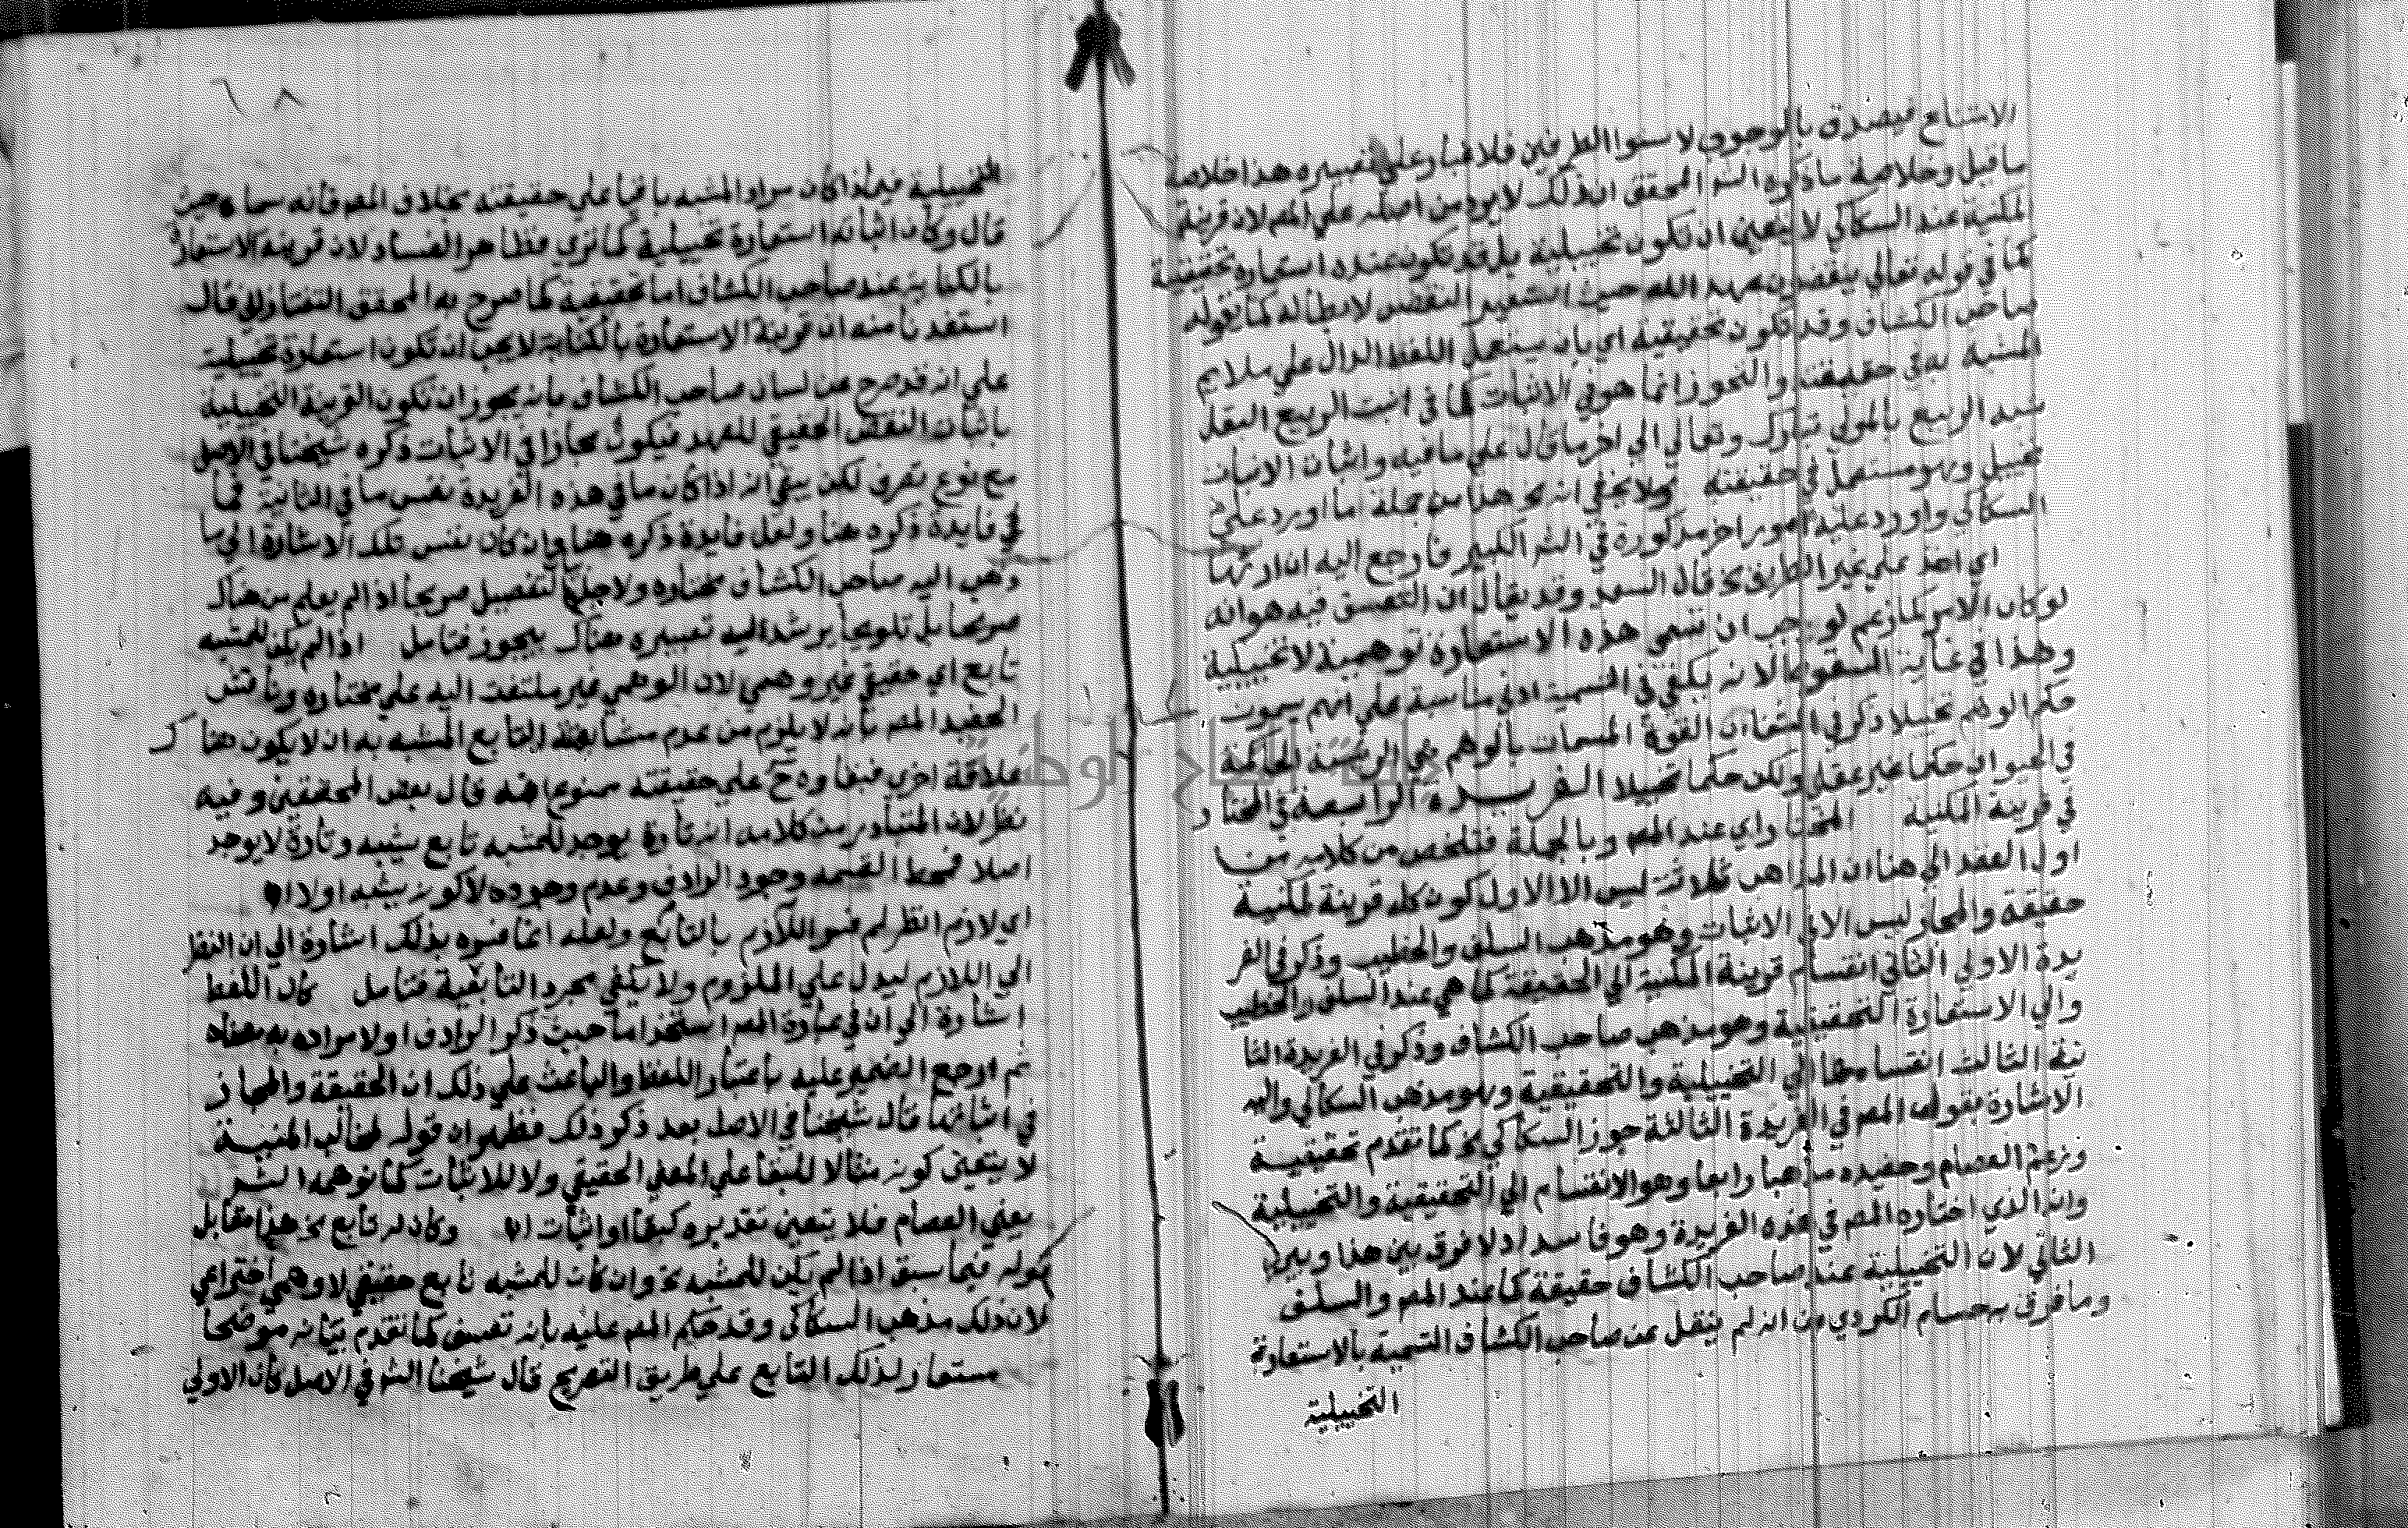 الامتناع فيصدق بالوجوب لاستوا الطرفين فلا غبار على تفسيره هذا خلاصة
ما قيل وخلاصة ما ذكره الشر المحقق ان ذلك لا يرد من اصله على المص لان قرينة
المكنية عند السكاكي لا يتعين ان تكون تخييلية بل قد تكون عنده استعارة تحقيقية
كما في قوله تعالى ينقضون عهد الله حيث النقض لابطاله كما يقوله
صاحب الكشاف وقد تكون تحقيقية اي بان يستعمل اللفظ الدال على ملايم
المشبه به في حقيقته والتجوز انما هو في الاثبات كما في انبت الربيع البقل
شبه الربيع بالمولى تبارك وتعالى الى اخر ما قال على ما فيه واثبات الانبات
تخييل وهو مستعمل في حقيقته ولا يخفى انه هذا من جملة ما اورد على
السكاكي واورد عليه امور اخر مذكورة في الشر الكبير فارجع اليه ان اردتها
اي اخذ على غير الطريق قال السعد وقد يقال ان التعسف فيه هو انه
لو كان الامر كما زعم لوجب ان تسمى هذه الاستعارة توهمية لا تخييلية
وهذا في غاية السقوط لانه يكفي في التسمية ادنى مناسبة على انهم يسمون
حكم الوهم تخييلا ذكر في الشفا ان القوة المسمات بالوهم هي الرئيسة الحاكمة
في الحيوان حكما غير عقلي ولكن حكما تخييلا الفريدة الرابعة في المختار
في قرينة المكنية المختار اي عند المص وبالجملة فتلخص من كلامه من
اول العقد الى هنا ان المذاهب ثلاثة ليس الا الاول كون كل قرينة لمكنية
حقيقة والمجاز ليس الا في الاثبات وهو مذهب السلف والخطيب وذكر في الفر
يدة الاولى الثاني انقسام قرينة المكنية الى الحقيقة كما هي عند السلف والخطيب
والى الاستعارة التحقيقية وهو مذهب صاحب الكشاف وذكر في الفريدة الثا
نية الثالث انقسامها الى التخييلية والتحقيقية وهو مذهب السكاكي واليه
الاشارة بقول المص في الفريدة الثالثة جوز السكاكي كما تقدم تحقيقية
وزعم العصام وحفيده مذهبا رابعا وهو الانقسام الى التحقيقية والتخييلية
وانه الذي اختاره المص في هذه الفريدة وهو فاسد اذ لا فرق بين هذا وبين
الثاني لان التخييلية عند صاحب الكشاف حقيقة كما عند المص والسلف
وما فرق به حسام الكردي من انه لم ينقل عن صاحب الكشاف التسمية بالاستعارة
التخييلية
التخييلية فيما اذا كان مراد المشبه باقيا على حقيقته بخلاف المص فانه سماه حيث
قال وكان اثباته استعارة تخييلية كما ترى فظاهر الفساد لان قرينة الاستعارة
بالكناية عند صاحب الكشاف اما تحقيقية كما صرح به المحقق التفتازاني قال
استفدنا منه ان قرينة الاستعارة بالكناية لا يجب ان تكون استعارة تخييلية
على انه قد صرح عن لسان صاحب الكشاف بانه يجوز ان تكون القرينة التخييلية
باثبات النقض الحقيقي للعهد فيكون مجازا في الاثبات ذكره شيخنا في الاصل
مع نوع تصرف لكن بقي انه اذا كان ما في هذه الفريدة نفس ما في الثانية فما
في فايدة ذكره هنا ولعل فايدة ذكره هنا وان كان نفس تلك الاشارة الى ما
وهب اليه صاحب الكشاف مختاره ولاجل التفصيل صريحا اذ لم يعلم من هناك
صريحا بل تلويحا يرشد اليه تعبيره هناك بيجوز فتامل اذا لم يكن للمشبه
تابع اي حقيقي غير وهمي لان الوهمي غير ملتفت اليه على مختاره وناقش
الحفيد المص بانه لا يلزم من عدم مشابهة التابع المشبه به ان لا يكون هنا
علاقة اخرى فبقاوه ح على حقيقته ممنوع اهـ قال بعض المحققين وفيه
نظر لان المتبادر من كلامه انه تارة يوجد للمشبه تابع يشبه وتارة لا يوجد
اصلا فمحط القسمة وجود الرادف وعدم وجوده لا كونه يشبه اولا اهـ
اي لازم انظر لم فسر اللازم بالتابع ولعله انما فسره بذلك اشارة الى ان النظر
الى اللازم ليدل على الملزوم ولا يكفي مجرد التابعية فتامل كان اللفظ
اشارة الى ان في عبارة المص استخداما حيث ذكر الرادف اولا مراده به معناه
ثم ارجع الضمير عليه باعتبار اللفظ والباعث على ذلك ان الحقيقة والمجاز
في اثباتها قال شيخنا في الاصل بعد ذكر ذلك فظهر ان قوله لمخالب المنية
لا يتعين كونه مثالا للبقا على المعنى الحقيقي ولا للاثبات كما توهمه الشر
يعني العصام فلا يتعين تقديره كبقا او اثبات اهـ وكان له تابع هذا مقابل
قوله فيما سبق اذا لم يكن للمشبه وان كان للمشبه تابع حقيقي لا وهمي اختراعي
لان ذلك مذهب السكاكي وقد حكم المص عليه بانه تعسف كما تقدم بيانه موضحا
مستعار لذلك التابع على طريق التصريح قال شيخنا الشر في الاصل كان الاولى
جامعة النجاح الوطنية